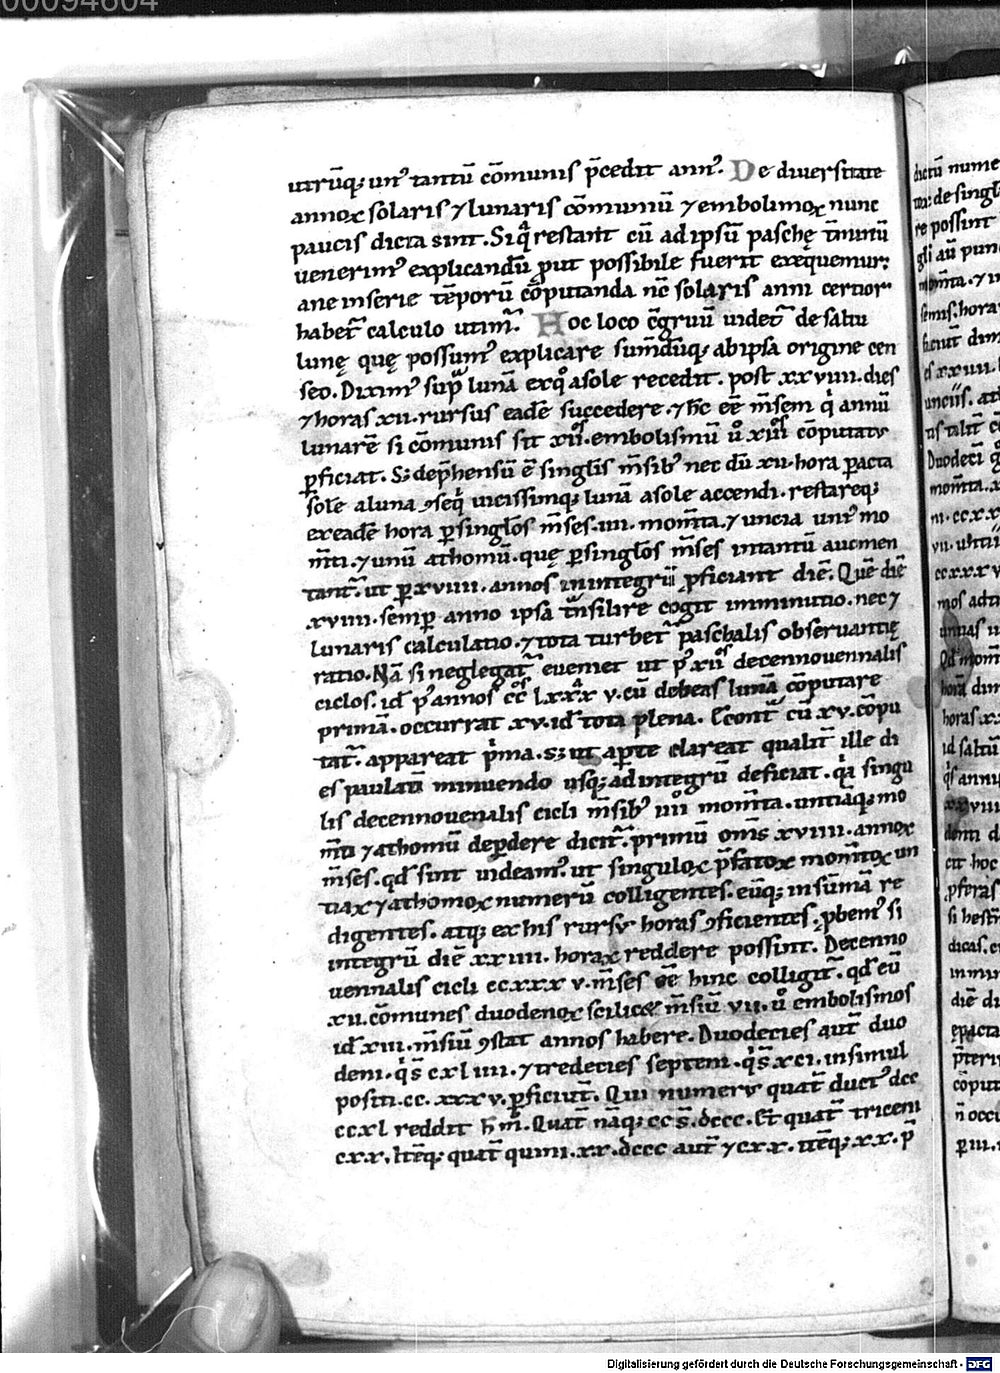 00094604
utrūq; un᾽ tantū cōmunis p̄cedit ann᾽. De diuersitate
annoꝝ solaris ⁊ lunaris cōmuniū ⁊ embolimoꝝ nunc
paucis dicta sint. Siq̄ restant cū ad ipsū paschę t̄minū
uenerim᾽ explicandū ꝓut possibile fuerit exequemur;
ane in serie tēporū cōputanda nc̄ solaris anni certior
habet̄ calculo utim᾽. Hoc loco c̄gruū uidet̄ de saltu
lunę quę possum᾽ explicare sum̄duq; ab ipsa origine cen
seo. Dixim᾽ sup̄ lunā ex qͦ a sole recedit. post xxviiii. dies
⁊ horas xii. rursus eadē succedere. ⁊ h̄c eē m̄sem qͥ annū
lunarē si cōmunis sit xii᷒. embolismū uͦ xiii᷒ cōputatꝰ
ꝑficiat. S; dep̄hensū ē singl̄is m̄sib᾽ nec dū xii. hora ꝑacta
sole a luna ꝯseqͥ uicissimq; lunā a sole accendi. restareq;
ex eadē hora ꝑ singl̄os m̄ses. iiii. mom̄ta. ⁊ uncia uni᾽ mo
m̄ti. ⁊ unū athomū. quę ꝑ singl̄os m̄ses intantū aucmen
tant᾽. ut ꝑ xviiii. annos in integrū ꝓficiant diē. Quē diē
xviiii. semꝑ anno ipsā t̄nsilire cogit imminutio. nec ⁊
lunaris calculatio. ⁊ tota turbet̄ paschalis obseruantię
ratio. Nā si neglegat̄ eueniet ut p᾽ xii᷒ decennouennalis
ciclos. id̄ p᾽ annos cc᷒ lxxx v. cū debeas lunā cōputare
primā. occurrat xv. id̄ tota plena. Econt̄ cū xv. cōpu
tat᾽. appareat pͥma. s; ut aꝑte clareat qualit̄ ille di
es paulatī minuendo usq; ad integrū deficiat. qͥa singu
lis decennouenalis cicli m̄sib᾽ iiii mom̄ta. untiāq; mo
m̄ti ⁊ athomū deꝑdere dicit᾽. primū om̄s xviiii. annoꝝ
m̄ses. qd̄ sint uideam᾽. ut singuloꝝ p̄fatoꝝ mom̄toꝝ un
tiaꝝ ⁊ athomoꝝ numerū colligentes. eūq; in sūmā re
digentes. atq; ex his rursꝰ horas ꝯficientes. ꝓbem᾽ si
integrū diē xxiiii. horaꝝ reddere possint. Decenno
uennalis cicli ccxxx v. m̄ses eē hinc colligit᾽. qd̄ eū
xii. cōmunes duodenoꝝ scilicet m̄siū vii. uͦ embolismos
id̄ xiii. m̄siū ꝯstat annos habere. Duodecies aut̄ duo
deni. qͥs̄ cxliiii. ⁊ tredecies septeni. qͥs̄ xci. in simul
positi. cc. xxx v. ꝑficiunt̄. Qui numerꝰ quat̄ duct᾽ dcc
ccxl reddit h̄m̄. Quat̄ nāq; cc s̄. dccc. Et quat̄ triceni
cxx. Itēq; quat̄ quini. xx. dccc aut̄ ⁊ cxx. itēq; xx. p̄
Digitalisierung gefördert durch die Deutsche Forschungsgemeinschaft - DFG